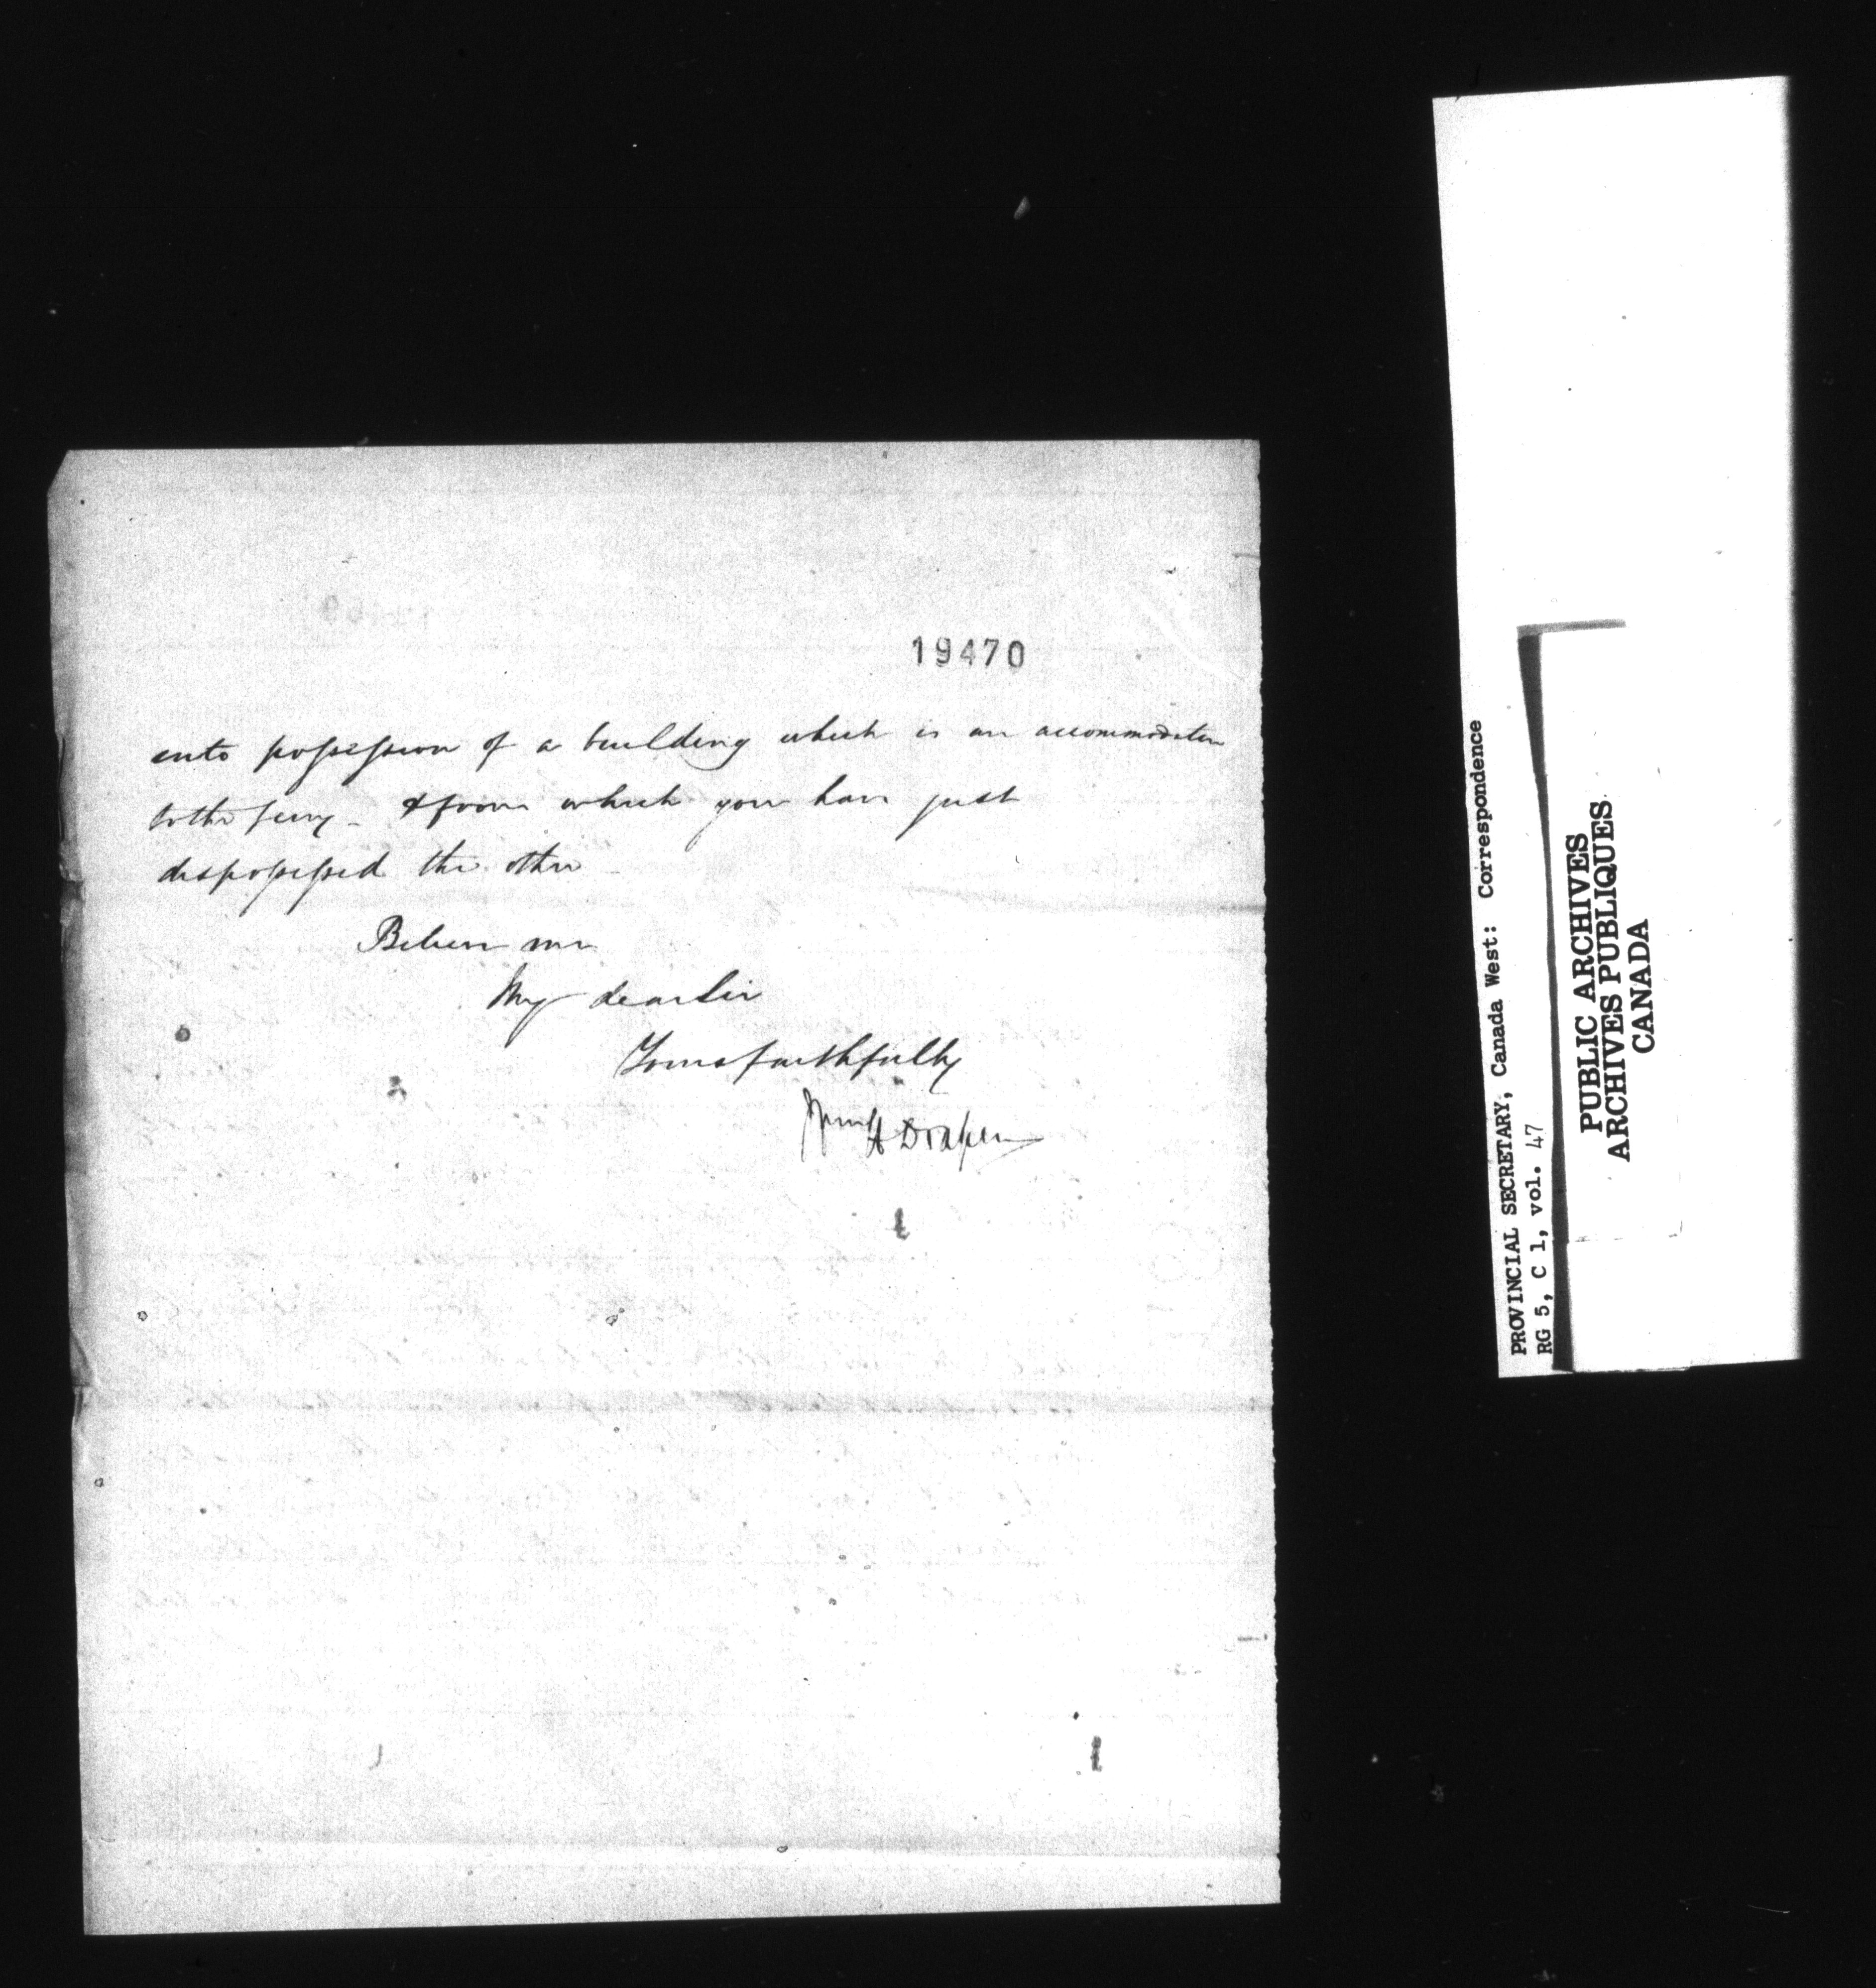 19470
into possession of a building which is an accommodation
to the ferry - & from which you have just
dispossessed the other -
Believe me
My dear Sir
Yours faithfully
Wm H Draper
PROVINCIAL SECRETARY, Canada West: Correspondence
RG 5, C 1, vol. 47
PUBLIC ARCHIVES
ARCHIVES PUBLIQUES
CANADA